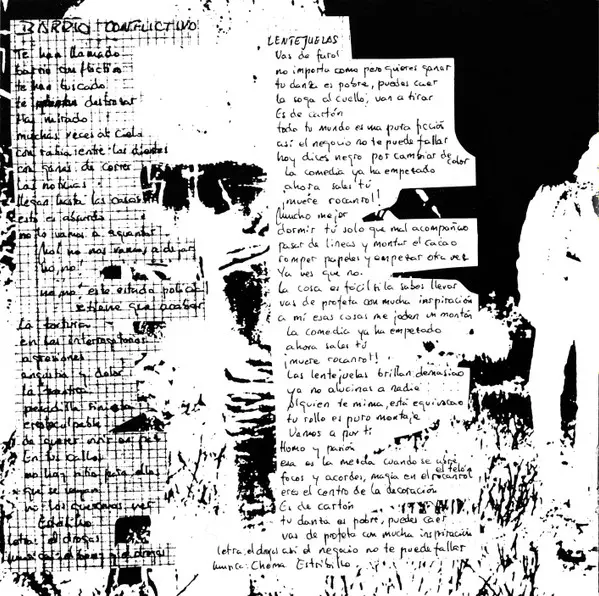 BARRIO CONFLICTIVO
Te han llamado
barrio conflictivo
te han buscado
te destrozar
Has mirado
muchas veces al cielo
con rabia entre los dientes
con ganas de correr
Las noticias
llegan hasta las casas
esto es absurdo
no lo vamos a aguantar
¡No! no nos vamos a dejar
no, no!
no, no! este estado policial
tiene que acabar
La tortura
en los interrogatorios
agresiones
angustia y dolor
la
pesadilla siniestra
de querer vivir en paz
En las calles
no hay sitio para ellos
que se vayan
no los queremos ver
Estribillo
letra: el drogas
musica: el drogas
LENTEJUELAS
Vas de farol
no importa como pero quieres ganar
tu danza es pobre, puedes caer
la soga al cuello, van a tirar
Es de cartón
todo tu mundo es una pura ficción
así el negocio no te puede fallar
hoy dices negro por cambiar de color
la comedia ya ha empezado
ahora sales tú
¡muere rocanrol!!
Mucho mejor
dormir tú solo que mal acompañao
pasar de lineas y montar el cacao
romper papeles y empezar otra vez
Ya ves que no.
La cosa es fácil si la sabes llevar
vas de profeta con mucha inspiración
a mí esas cosas me joden un montón
La comedia ya ha empezado
ahora sales tú
¡muere rocanrol!!
Las lentejuelas brillan demasiao
ya no alucinas a nadie
Alguien te mima, está equivocao
tu rollo es puro montaje
Vamos a por ti
Humo y pasión
esa es la mezcla cuando se abre el telón
focos y acordes, magia en el rocanrol
eres el centro de la decoración
Es de cartón
tu danza es pobre, puedes caer
vas de profeta con mucha inspiración
así el negocio no te puede fallar
Estribillo
letra: el drogas
musica: Chema